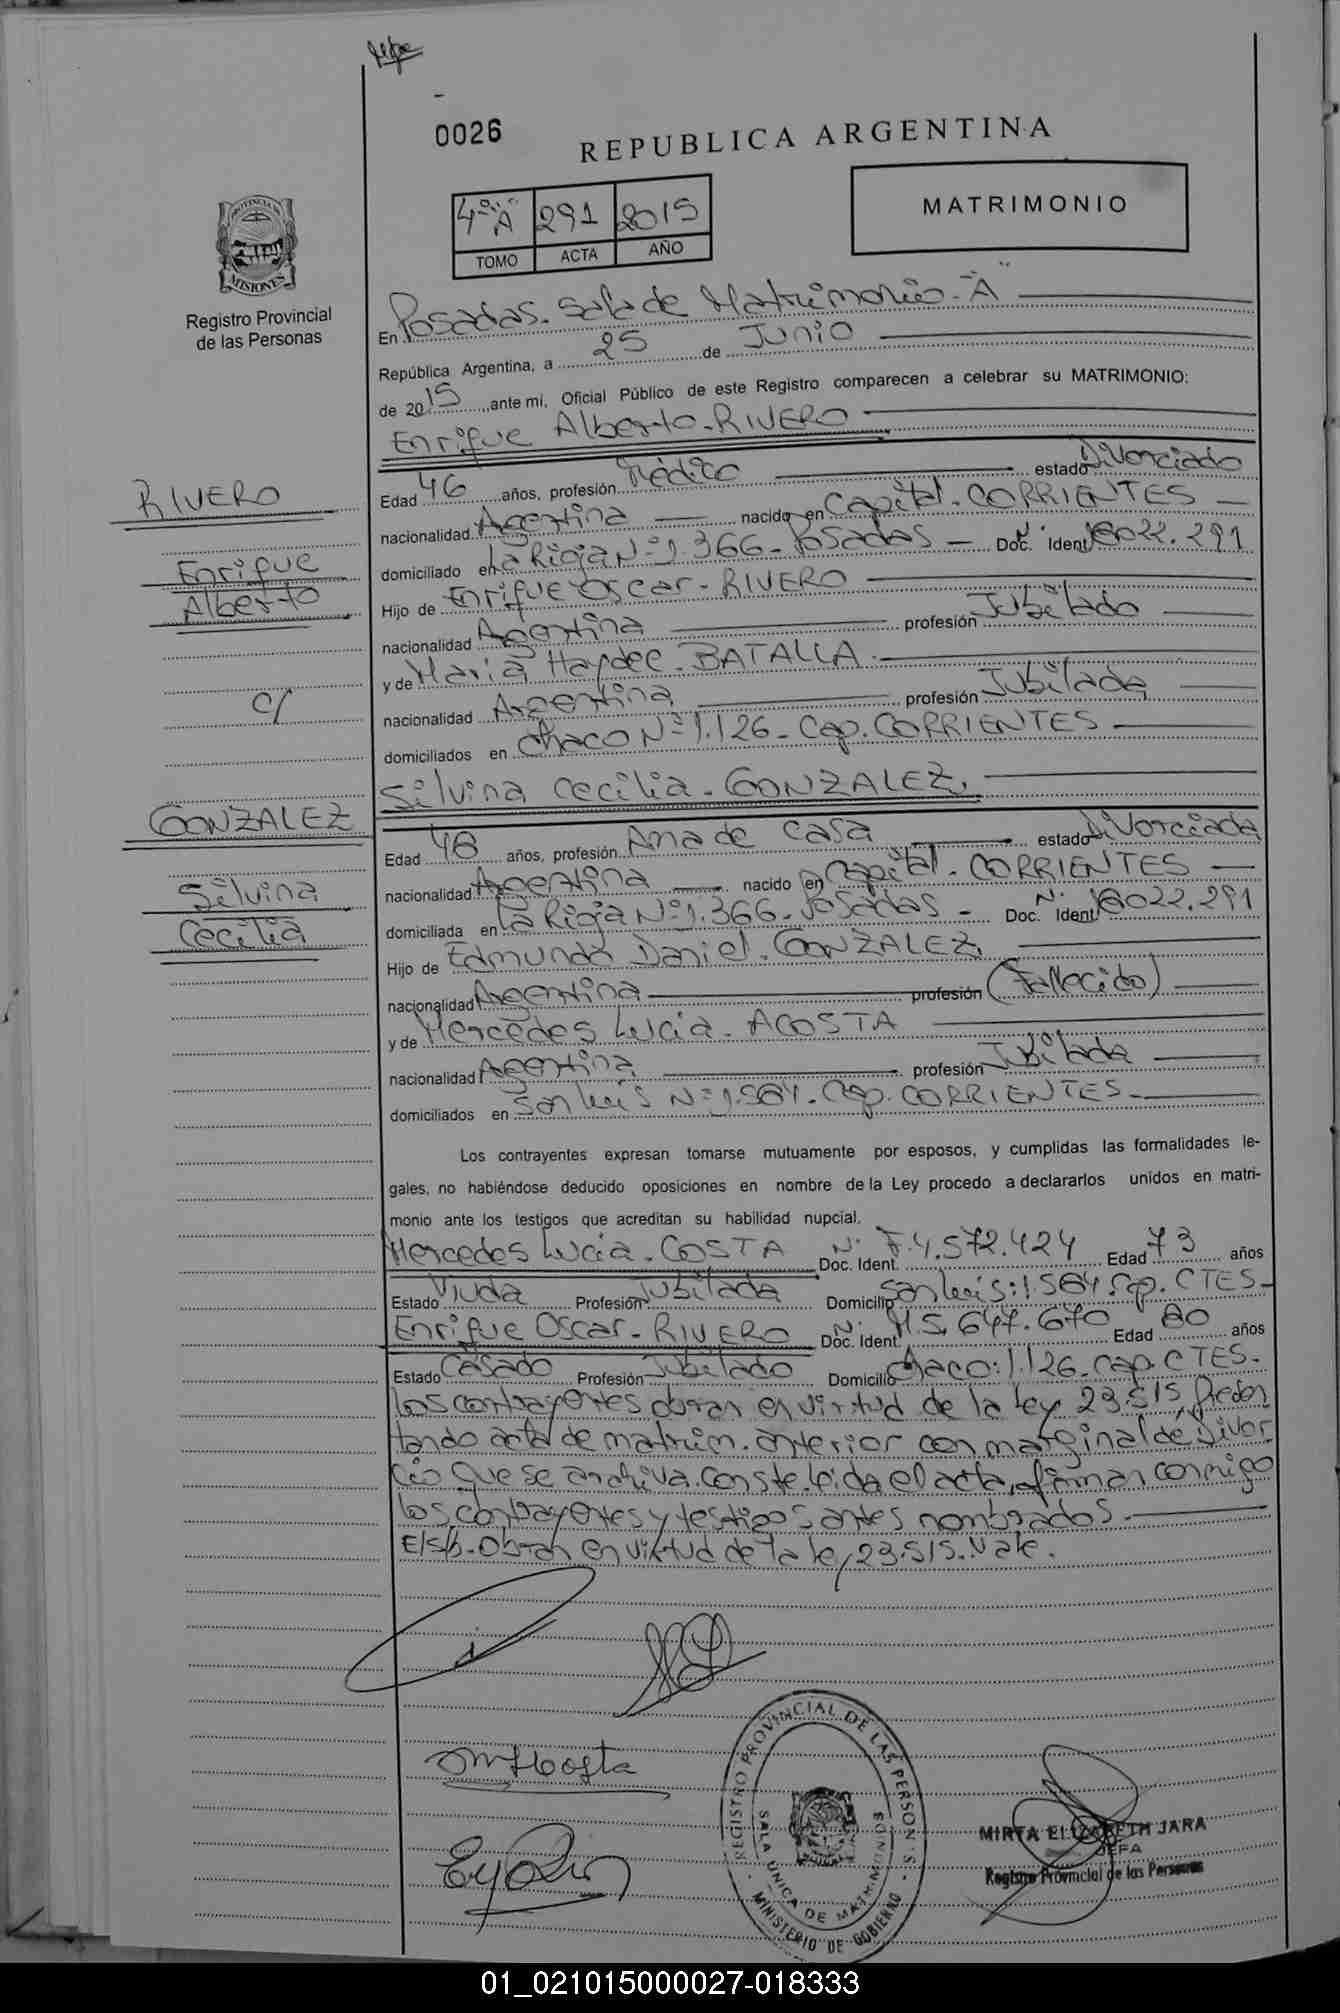 0026
REPUBLICA ARGENTINA
4º "A" 291 2015
TOMO ACTA AÑO
MATRIMONIO
PROVINCIA DE MISIONES
Registro Provincial
de las Personas
En Posadas. Sala de Matrimonio - "A"
República Argentina, a 25 de Junio
de 2015, ante mi, Oficial Público de este Registro comparecen a celebrar su MATRIMONIO:
Enrique Alberto - RIVERO
RIVERO
Enrique
Alberto
c/
GONZALEZ
Silvina
Cecilia
Edad 46 años, profesión Médico estado Divorciado
nacionalidad Argentina nacido en Capital. CORRIENTES
domiciliado en La Rioja Nº 1.366 - Posadas - Doc. Ident. Nº 18.022.291
Hijo de Enrique Oscar - RIVERO
nacionalidad Argentina profesión Jubilado
y de Maria Haydee. BATALLA.
nacionalidad Argentina profesión Jubilada
domiciliados en Chaco Nº 1.126 - Cap. CORRIENTES
Silvina Cecilia - GONZALEZ.
Edad 48 años, profesión Ama de Casa estado Divorciada
nacionalidad Argentina nacido en Capital. CORRIENTES
domiciliada en La Rioja Nº 1.366 - Posadas - Doc. Ident. Nº 18.022.291
Hijo de Edmundo Daniel. GONZALEZ.
nacionalidad Argentina profesión (Fallecido)
y de Mercedes Lucia. ACOSTA
nacionalidad Argentina profesión Jubilada
domiciliados en San Luis Nº 1.584. Cap. CORRIENTES.
Los contrayentes expresan tomarse mutuamente por esposos, y cumplidas las formalidades le-
gales, no habiéndose deducido oposiciones en nombre de la Ley procedo a declararlos unidos en matri-
monio ante los testigos que acreditan su habilidad nupcial.
Mercedes Lucia. COSTA Doc. Ident. Nº F. 4.572.424 Edad 73 años
Estado Viuda Profesión Jubilada Domicilio San Luis: 1.584. Cap. CTES-
Enrique Oscar - RIVERO Doc. Ident. Nº M 5.647.670 Edad 80 años
Estado Casado Profesión Jubilado Domicilio Chaco: 1.126. Cap. CTES.
Los contrayentes obran en virtud de la ley 23.515, Presen
tando acta de matrim. anterior con marginal de Divor
cio que se archiva. conste. Leida el acta, firman conmigo
los contrayentes y testigos antes nombrados.
E/S/b. Obran en virtud de la ley 23.515. Vale.
REGISTRO PROVINCIAL DE LAS PERSONAS
SALA UNICA DE MATRIMONIOS
MINISTERIO DE GOBIERNO
MIRTA ELIZABETH JARA
JEFA
Registro Provincial de las Personas
01_021015000027-018333